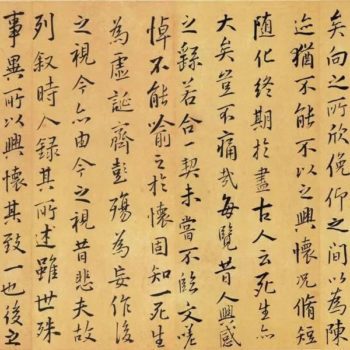 矣向之所欣俛仰之間以為陳
迹猶不能不以之興懷況脩短
随化終期於盡古人云死生亦
大矣豈不痛哉每覽昔人興感
之繇若合一契未嘗不臨文嗟
悼不能喻之於懷固知一死生
為虛誕齊彭殤為妄作後
之視今亦由今之視昔悲夫故
列叙時人録其所述雖世殊
事異所以興懷其致一也後之